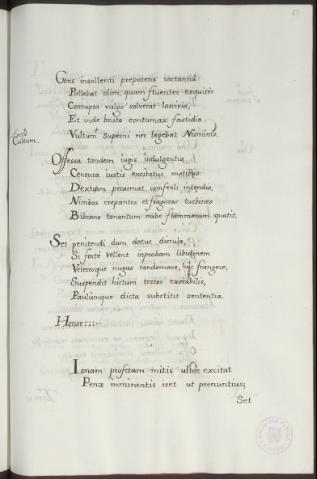 Gens insollenti prepotens iactantia
Pollebat olim, quam fluentes nequiter
Corrupta vulgo solverat lascivia,
Et inde bruto contumax fastidio
Vultum Superni nec legebat Numinis.
Cultum.
Offessa tandem iugis indulgentia
Censura iustis excitatur motibus
Dextram perarmat
Nimbos crepantes et fragosos turbines
Vibrans tonantum nube flammarum quatit.
Set penitendi dum datur diecula,
Si forte vellent inprobam libidinem
Veteresque nugas condemnare, ac frangere,
Suspendit hictum terror exorabilis,
Paulumque dicta substitit sententia.
Ionam profetam mitis ultor excitat
Penæ inminentis iret ut prenuntius;
Set